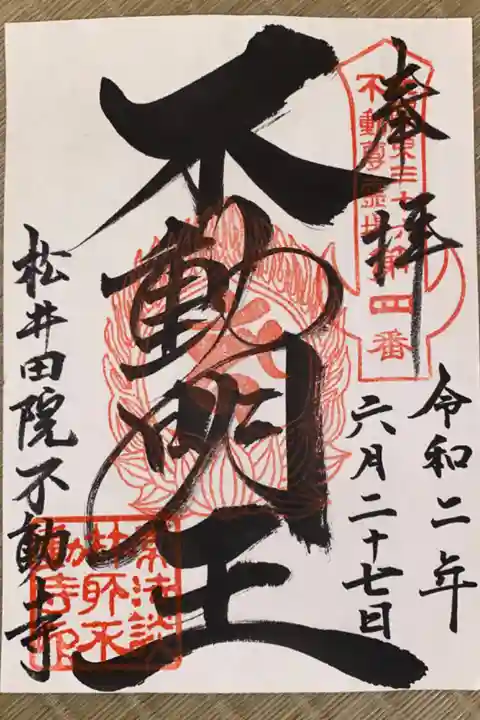 奉拝
令和二年
六月二十七日
不動明王
松井田院不動寺
不動尊霊場
第四番